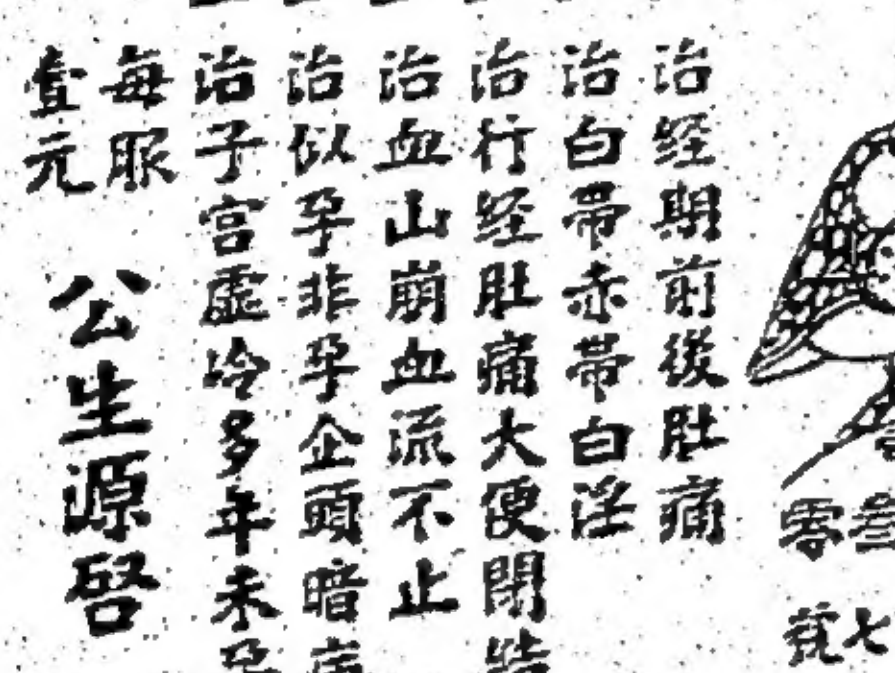 零叁
號七
治經期前後肚痛
治白帶赤帶白淫
治行經肚痛大便閉結
治血山崩血流不止
治似孕非孕企頭暗病
治子宮虛冷多年未孕
每服
壹元
公生源啓